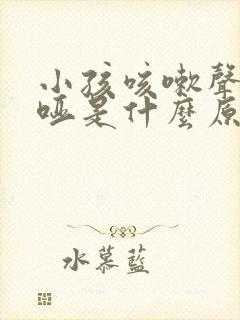 小孩咳嗽聲
啞是什麼原
水慕藍